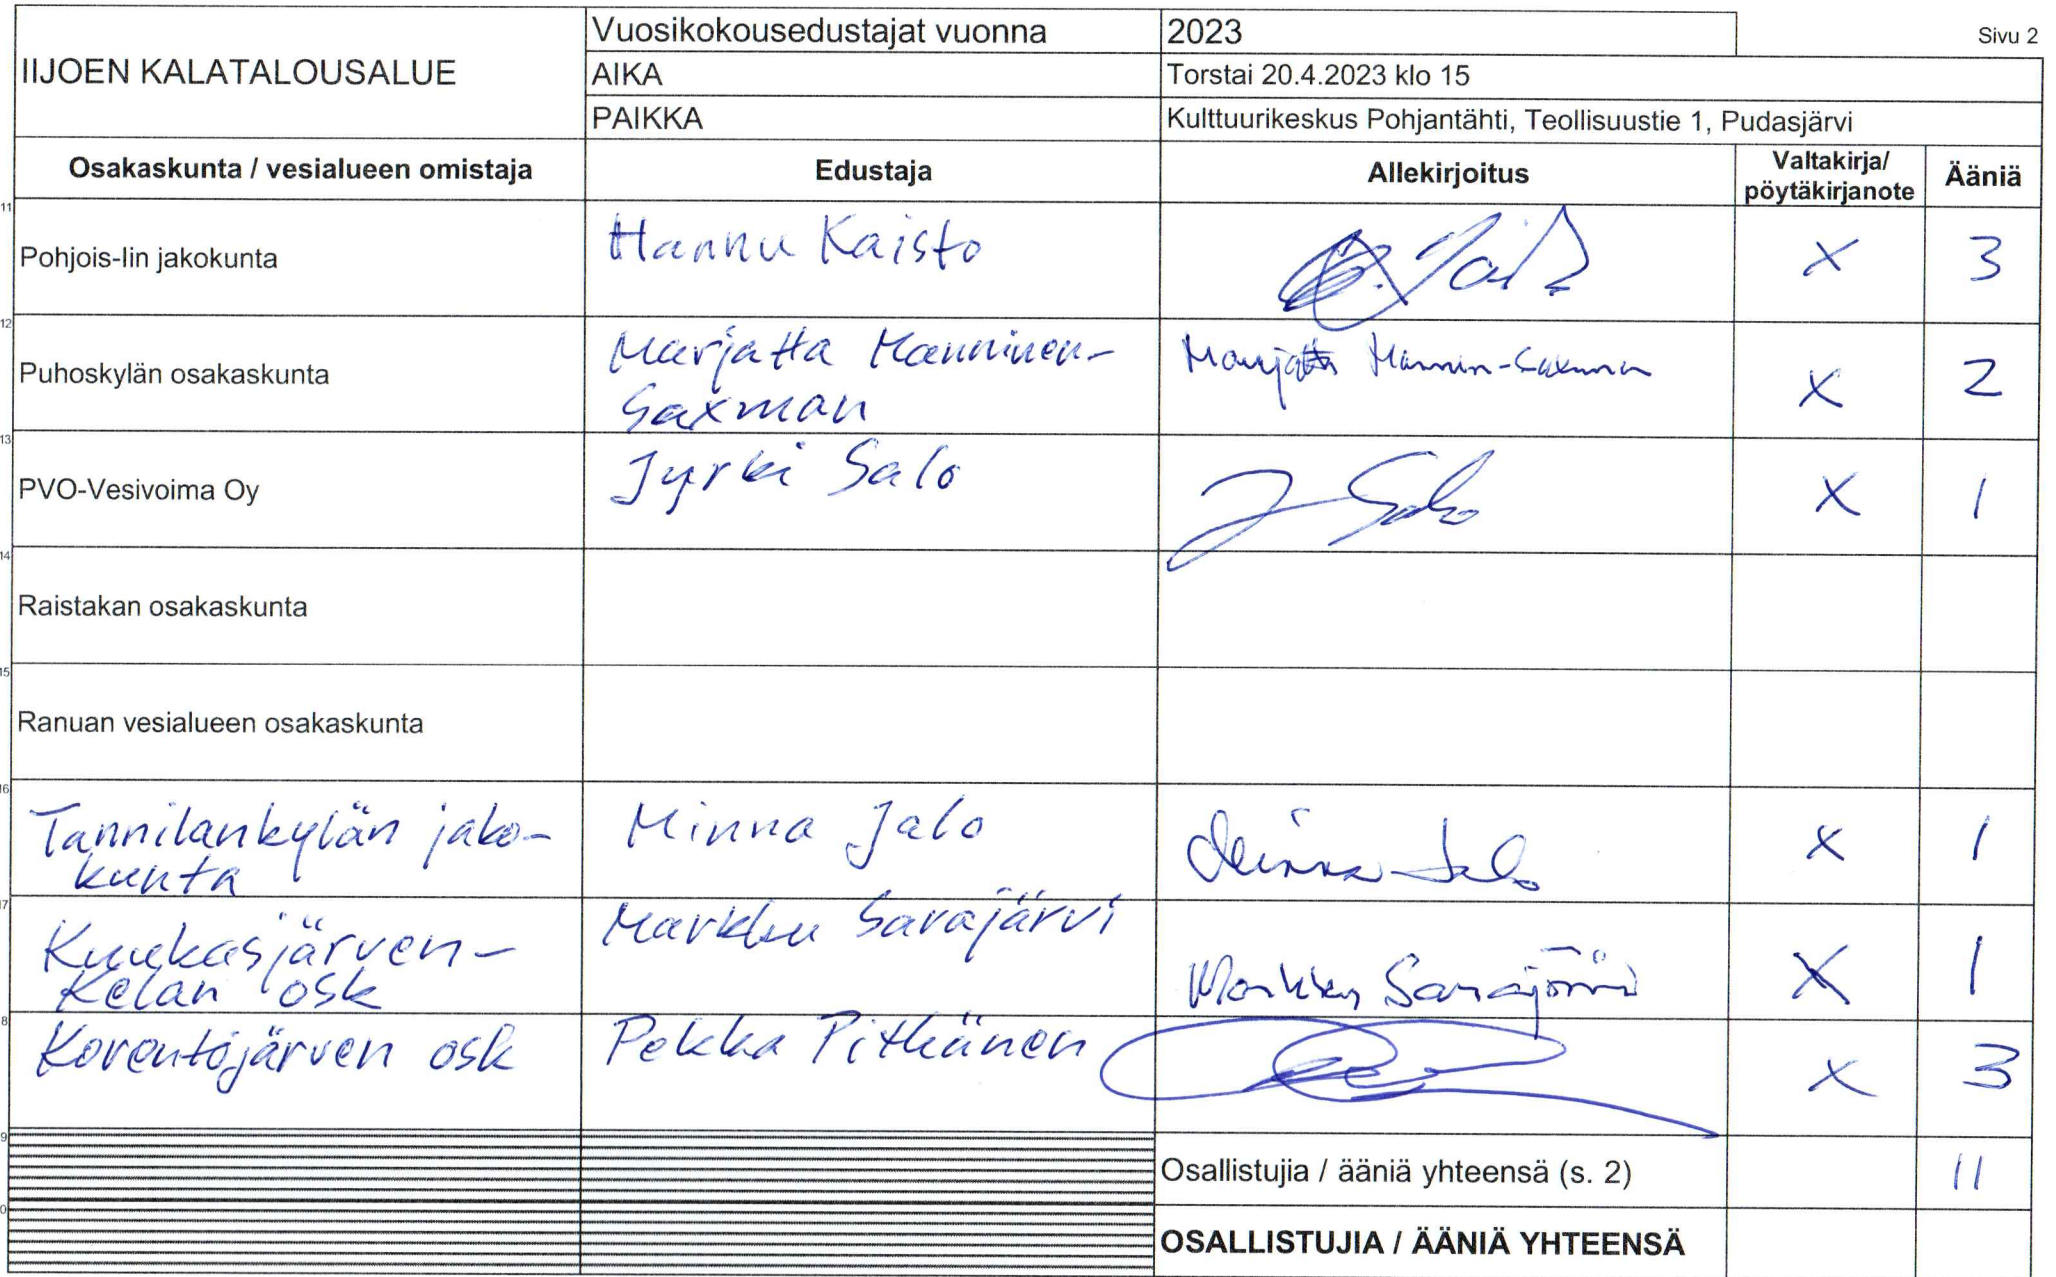 IIJOEN KALATALOUSALUE
Vuosikokousedustajat vuonna 2023
Sivu 2
AIKA Torstai 20.4.2023 klo 15
PAIKKA Kulttuurikeskus Pohjantähti, Teollisuustie 1, Pudasjärvi
Osakaskunta / vesialueen omistaja Edustaja Allekirjoitus Valtakirja/ pöytäkirjanote Ääniä
11 Pohjois-Iin jakokunta Hannu Kaisto X 3
12 Puhoskylän osakaskunta Marjatta Manninen-
Saxman X 2
13 PVO-Vesivoima Oy Jyrki Salo J Salo X 1
14 Raistakan osakaskunta
15 Ranuan vesialueen osakaskunta
16 Tannilankylän jako-
kunta Minna Jalo Minna Jalo X 1
17 Kuukasjärven-
Kelan osk Markku Sarajärvi Markku Sarajärvi X 1
8 Korentojärven osk Pekka Pitkänen X 3
9 Osallistujia / ääniä yhteensä (s. 2) 11
0 OSALLISTUJIA / ÄÄNIÄ YHTEENSÄ